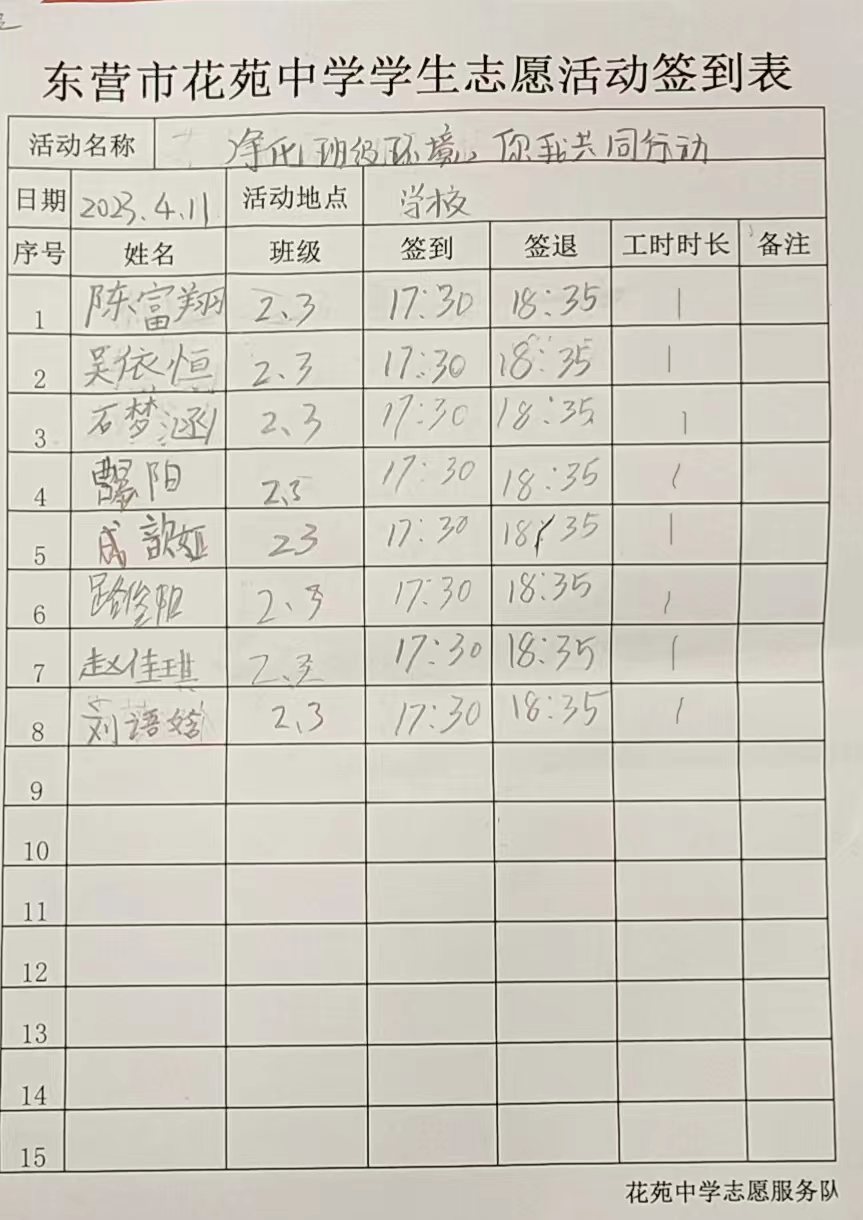 东营市花苑中学学生志愿活动签到表
活动名称 净化班级环境，你我共同行动
日期 2023.4.11 活动地点 学校
序号 姓名 班级 签到 签退 工时时长 备注
1 陈富翔 2.3 17:30 18:35 1
2 吴依恒 2.3 17:30 18:35 1
3 石梦涵 2.3 17:30 18:35 1
4 阳 2.3 17:30 18:35 1
5 成歆 23 17:30 18:35 1
6 路俊阳 2.3 17:30 18:35 1
7 赵佳琪 2.3 17:30 18:35 1
8 刘语 2.3 17:30 18:35 1
9
10
11
12
13
14
15
花苑中学志愿服务队